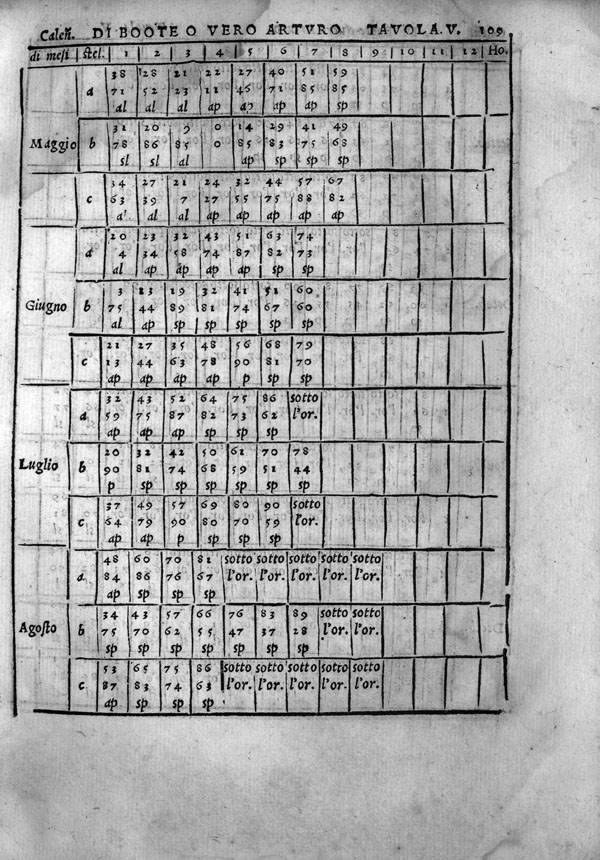 Calen. DI BOOTE O VERO ARTURO TAVOLA. V. 109
di mesi | stel. | 1 | 2 | 3 | 4 | 5 | 6 | 7 | 8 | 9 | 10 | 11 | 12 | Ho.
38 28 21 22 27 40 51 59
a 71 52 23 11 46 71 85 85
al al al ap ap ap ap ap
31 20 9 0 14 29 41 49
Maggio b 78 86 85 0 85 83 75 68
sl sl al ap sp sp sp
34 27 21 24 32 44 57 67
c 63 39 7 27 55 75 88 82
a' al al ap ap ap ap ap
20 23 32 43 51 63 74
a 4 34 58 74 87 82 73
al ap ap ap ap sp sp
3 13 19 32 41 51 60
Giugno b 75 44 89 81 74 67 60
al ap sp sp sp sp sp
21 27 35 48 56 68 79
c 13 44 63 78 90 81 70
ap ap ap ap p sp sp
32 43 52 64 75 86 sotto
a 59 75 87 82 73 62 l'or.
ap ap ap sp sp sp
20 32 42 50 61 70 78
Luglio b 90 81 74 68 59 51 44
p sp sp sp sp sp sp
37 49 57 69 80 90 sotto
c 64 79 90 80 70 59 l'or.
ap ap p sp sp sp
48 60 70 81 sotto sotto sotto sotto sotto
a 84 86 76 67 l'or. l'or. l'or. l'or. l'or.
ap sp sp sp
34 43 57 66 76 83 89 sotto sotto
Agosto b 75 70 62 55 47 37 28 l'or. l'or.
sp sp sp sp sp sp sp
53 65 75 86 sotto sotto sotto sotto sotto
c 87 83 74 63 l'or. l'or. l'or. l'or. l'or.
ap sp sp sp